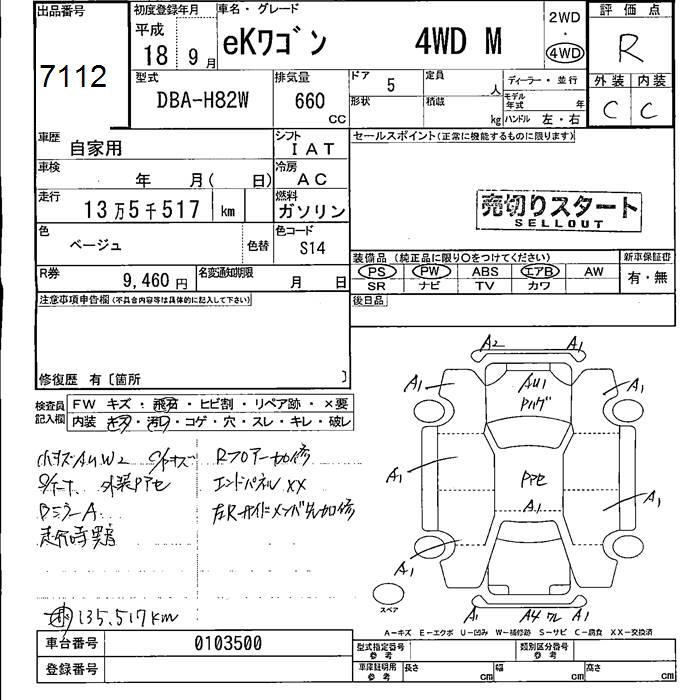 出品番号
7112
初度登録年月
平成
18 9 月
車名・グレード
eKワゴン 4WD M
2WD
・
4WD
評価点
R
外装 内装
C C
型式
DBA-H82W
排気量
660
CC
ドア 5
形状
定員 人
積載 kg
ディーラー・並行
モデル年式 年
ハンドル 左・右
車歴 自家用
シフト IAT
車検 年 月( 日)
冷房 AC
走行 13万5千517 km
燃料 ガソリン
色 ベージュ
色替
色コード S14
R券 9,460 円
名変通知期限 月 日
セールスポイント(正常に機能するものに限ります)
売切りスタート
SELLOUT
装備品 (純正品に限り○をつけてください)
PS PW ABS エアB AW
SR ナビ TV カワ
新車保証書
有・無
後日品
注意事項申告欄(不具合内容等は具体的に記入して下さい)
修復歴 有〔箇所 〕
検査員記入欄
FW キズ・飛石・ヒビ割・リペア跡・×要
内装 キズ・汚れ・コゲ・穴・スレ・キレ・破レ
小キズAUW2
外装Pアセ
Dミラー A
走行時異音
Rフロアー加修
エンドパネルXX
左Rサイドメンバー加修
135,517km
A2 A1
A1 AU1 A1
Pハゲ
A1 Pアセ A1
A1
A1 A1
A1 A4 ワレ A1
スペア
A-キズ E-エクボ U-凹み W-補修跡 S-サビ C-腐食 XX-交換済
車台番号 0103500
登録番号
型式指定番号 参考
類別区分番号 参考
車庫証明用 参考
長さ cm 幅 cm 高さ cm